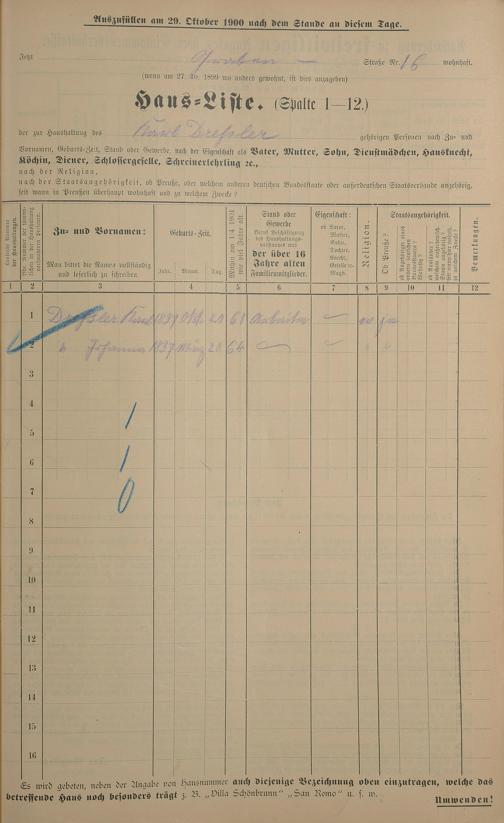 Auszufüllen am 29. Oktober 1900 nach dem Stande an diesem Tage.
Jetzt Graben Straße Nr. 16 wohnhaft.
(wenn am 27. 10. 1899 wo anders gewohnt, ist dies anzugeben)
Haus-Liste. (Spalte 1—12.)
der zur Haushaltung des Karl Dreßler gehörigen Personen nach Zu- und
Vornamen, Geburts-Zeit, Stand oder Gewerbe, nach der Eigenschaft als Vater, Mutter, Sohn, Dienstmädchen, Hausknecht,
Köchin, Diener, Schlossergeselle, Schreinerlehrling ꝛc.,
nach der Religion,
nach der Staatsangehörigkeit, ob Preuße, oder welchem anderen deutschen Bundesstaate oder außerdeutschen Staatsverbande angehörig,
seit wann in Preußen überhaupt wohnhaft und zu welchem Zwecke?
Zu- und Vornamen:
Man bittet die Namen vollständig und leserlich zu schreiben.
Geburts-Zeit.
Jahr. Monat. Tag.
Stand oder Gewerbe
der über 16 Jahre alten Familienmitglieder.
Eigenschaft:
ob Vater, Mutter, Sohn, Tochter, Knecht, Geselle, Magd.
Religion.
Staatsangehörigkeit.
Ob Preuße?
Bemerkungen.
1 2 3 4 5 6 7 8 9 10 11 12
1 Dreßler Karl 1839 Okt. 20 61 Arbeiter — ev ja
2 " Johanna 1837 März 20 64 — " "
3
4
1
5
6 1
7 0
8
9
10
11
12
13
14
15
16
Es wird gebeten, neben der Angabe von Hausnummer auch diejenige Bezeichnung oben einzutragen, welche das
betreffende Haus noch besonders trägt z. B. „Villa Schönbrunn" „San Remo" u. s. w.
Umwenden!